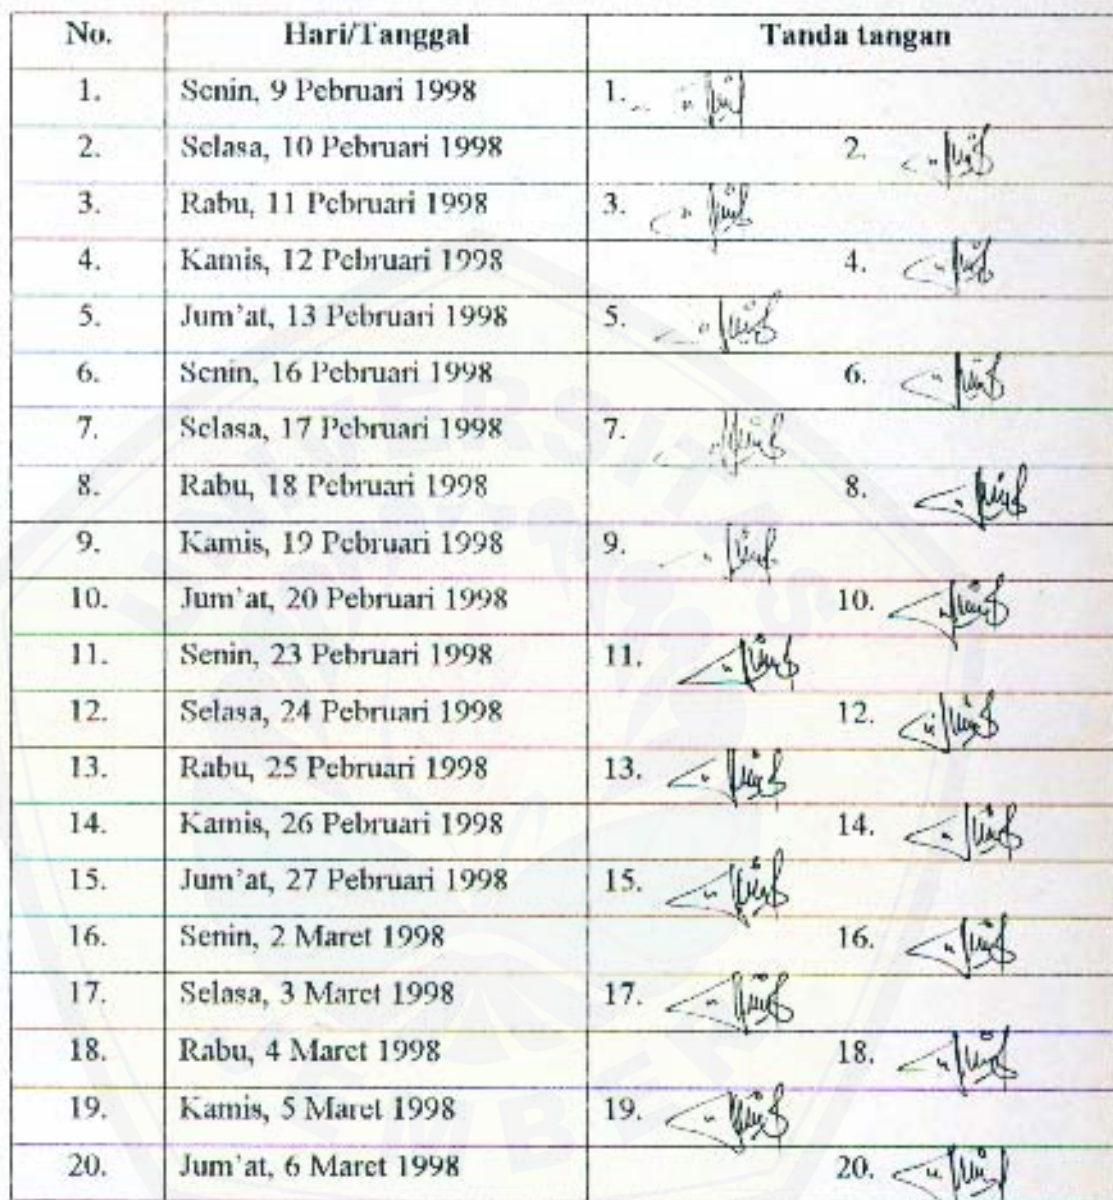 No. Hari/Tanggal Tanda tangan
1. Senin, 9 Pebruari 1998 1.
2. Selasa, 10 Pebruari 1998 2.
3. Rabu, 11 Pebruari 1998 3.
4. Kamis, 12 Pebruari 1998 4.
5. Jum'at, 13 Pebruari 1998 5.
6. Senin, 16 Pebruari 1998 6.
7. Selasa, 17 Pebruari 1998 7.
8. Rabu, 18 Pebruari 1998 8.
9. Kamis, 19 Pebruari 1998 9.
10. Jum'at, 20 Pebruari 1998 10.
11. Senin, 23 Pebruari 1998 11.
12. Selasa, 24 Pebruari 1998 12.
13. Rabu, 25 Pebruari 1998 13.
14. Kamis, 26 Pebruari 1998 14.
15. Jum'at, 27 Pebruari 1998 15.
16. Senin, 2 Maret 1998 16.
17. Selasa, 3 Maret 1998 17.
18. Rabu, 4 Maret 1998 18.
19. Kamis, 5 Maret 1998 19.
20. Jum'at, 6 Maret 1998 20.
UNIVERSITAS
JEMBER